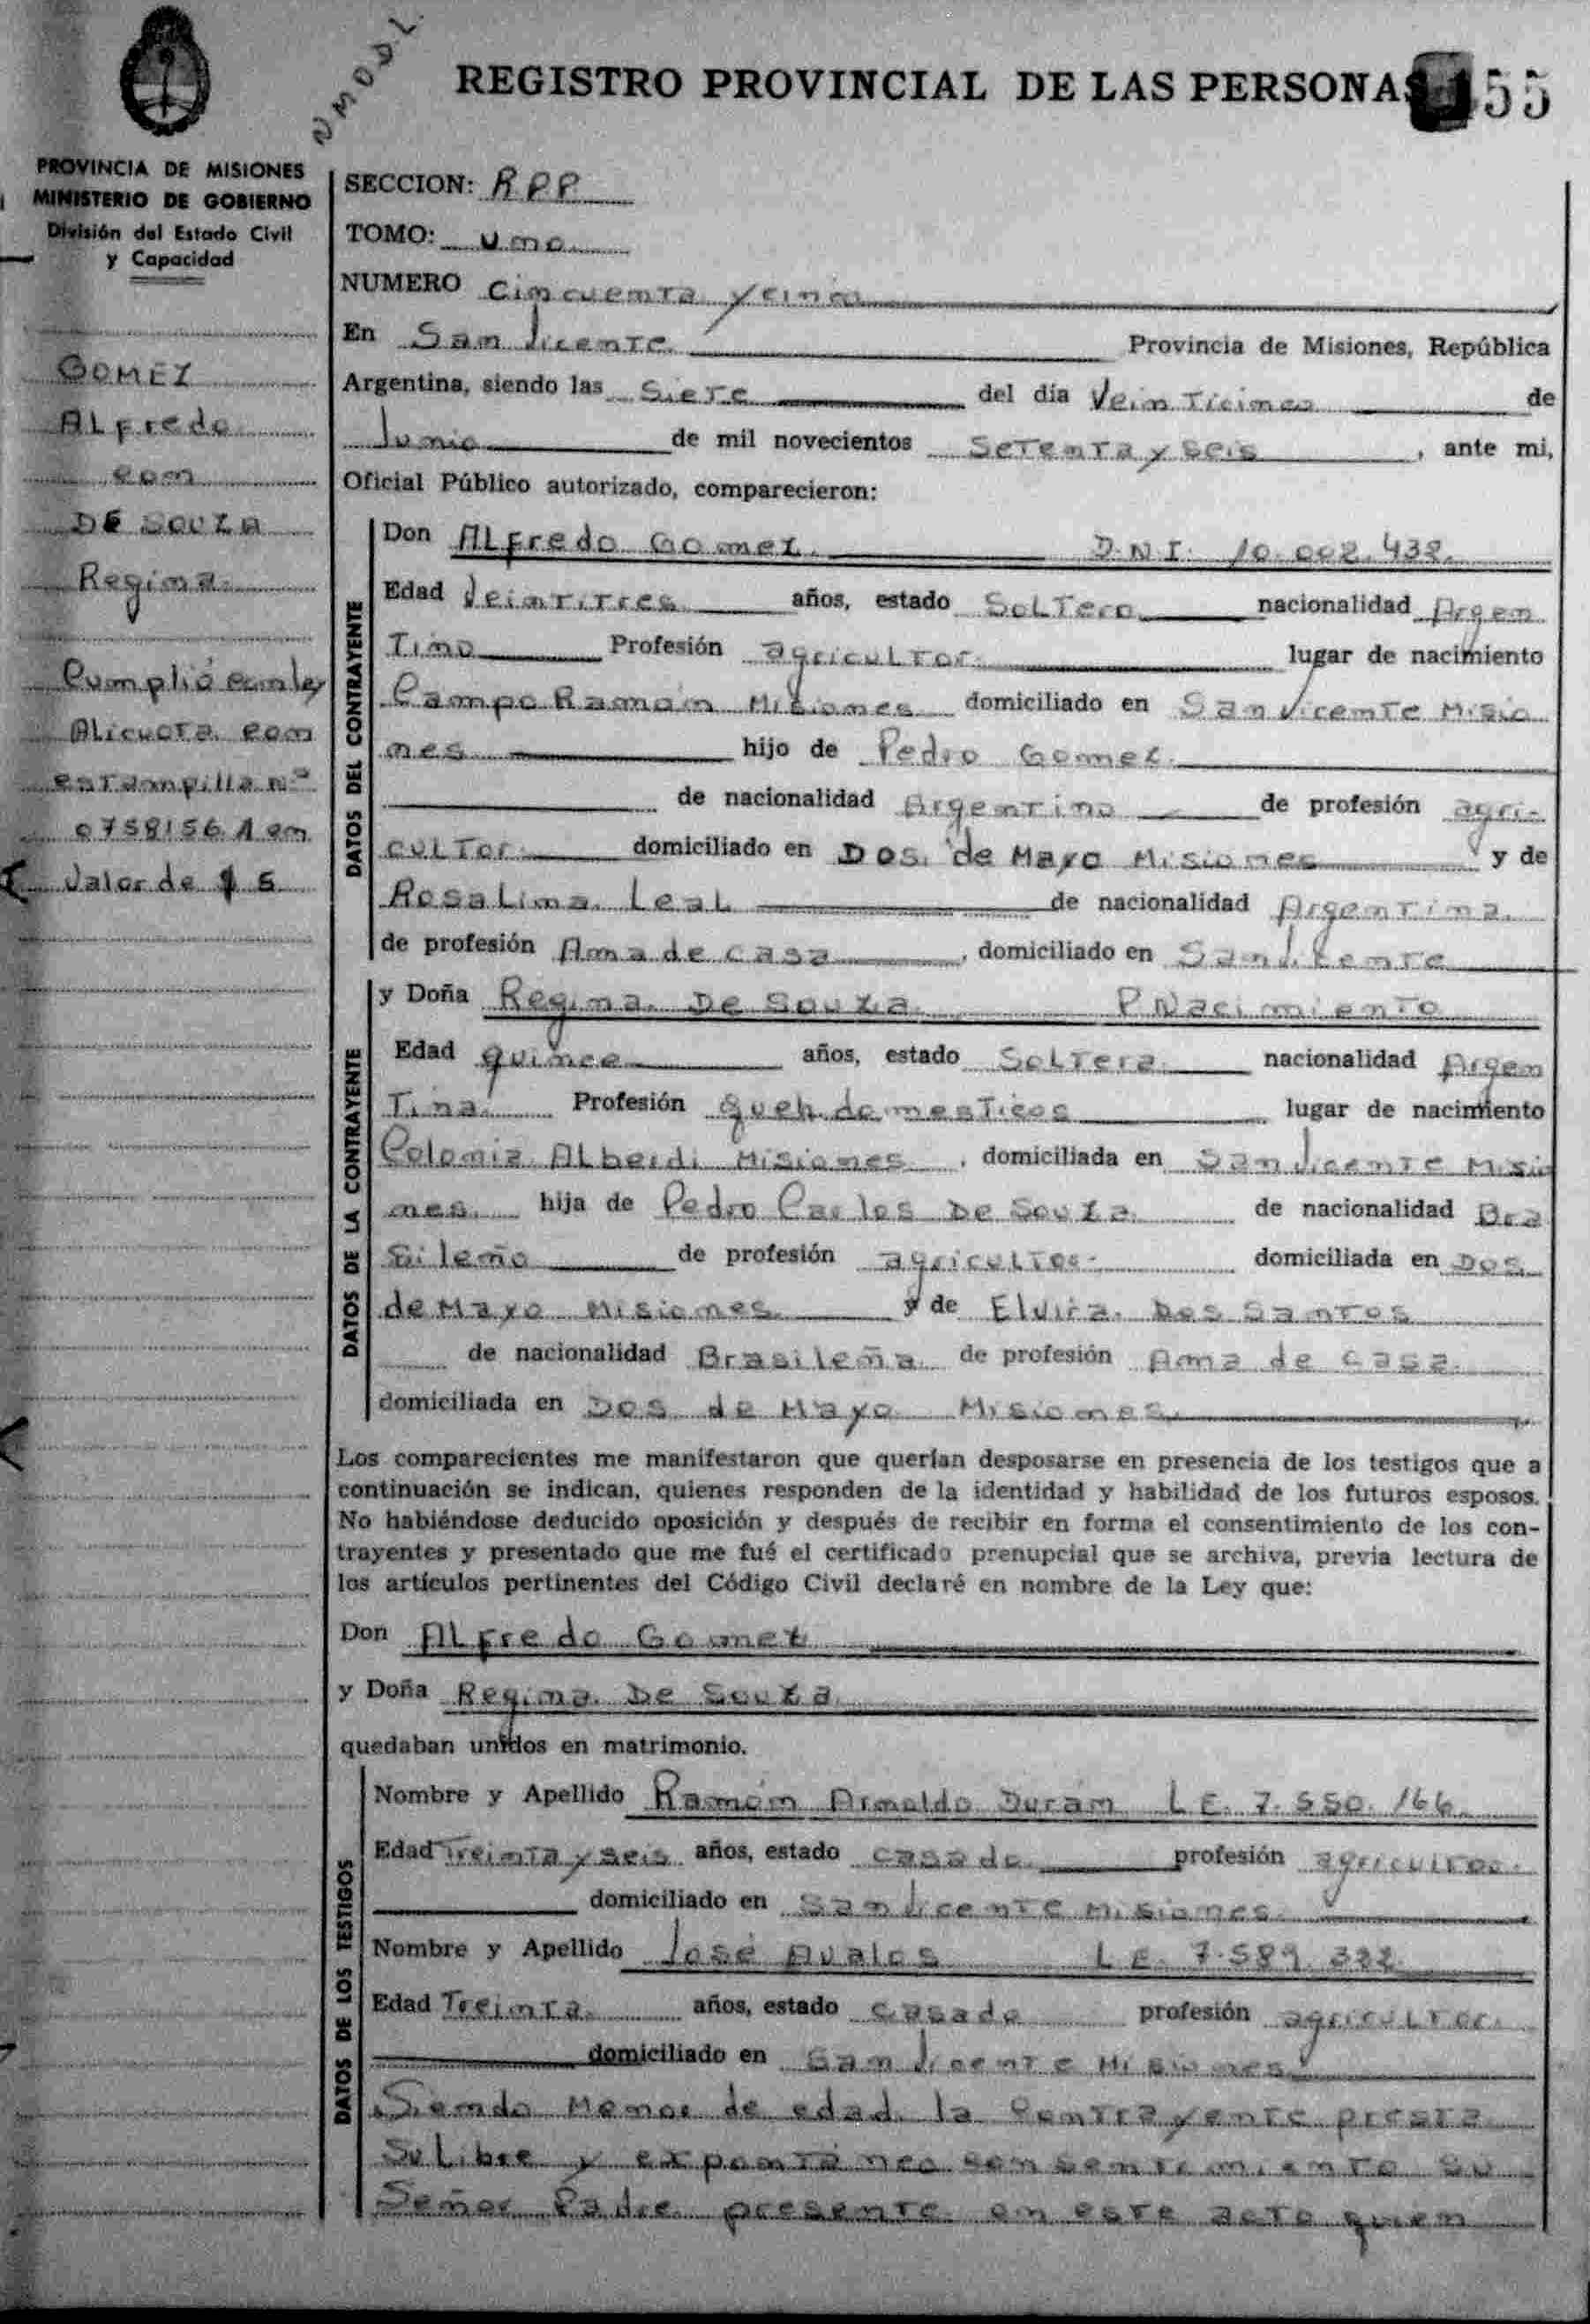 NMODL
REGISTRO PROVINCIAL DE LAS PERSONAS 55
PROVINCIA DE MISIONES
MINISTERIO DE GOBIERNO
División del Estado Civil
y Capacidad
GOMEZ
ALfredo
con
DE SOUZA
Regina
Cumplió con ley
Alicuota con
estampilla Nº
0758156 A en
Valor de $ 5
SECCION: RPP
TOMO: uno
NUMERO Cincuenta y cinco
En San Vicente Provincia de Misiones, República
Argentina, siendo las Siete del día Veinticinco de
Junio de mil novecientos Setenta y Seis, ante mi,
Oficial Público autorizado, comparecieron:
DATOS DEL CONTRAYENTE
Don ALfredo Gomez D.N.I. 10.002.432
Edad Veintitres años, estado SoLTero nacionalidad Argen
Tino Profesión agricultor lugar de nacimiento
Campo Ramón Misiones domiciliado en San Vicente Misio
nes hijo de Pedro Gomez
de nacionalidad Argentino de profesión agri-
cultor domiciliado en Dos de Mayo Misiones y de
Rosa Lima Leal de nacionalidad Argentina
de profesión Ama de casa, domiciliado en San Vicente
DATOS DE LA CONTRAYENTE
y Doña Regina De Souza P Nacimiento
Edad quince años, estado Soltera nacionalidad Argen
Tina Profesión queh. domesticos lugar de nacimiento
Colonia Alberdi Misiones, domiciliada en San Vicente Misio
nes hija de Pedro Carlos De Souza de nacionalidad Bra
sileño de profesión agricultor domiciliada en Dos
de Mayo Misiones y de Elvira Dos Santos
de nacionalidad Brasileña de profesión Ama de casa
domiciliada en Dos de Mayo Misiones
Los comparecientes me manifestaron que querían desposarse en presencia de los testigos que a
continuación se indican, quienes responden de la identidad y habilidad de los futuros esposos.
No habiéndose deducido oposición y después de recibir en forma el consentimiento de los con-
trayentes y presentado que me fué el certificado prenupcial que se archiva, previa lectura de
los artículos pertinentes del Código Civil declaré en nombre de la Ley que:
Don ALfredo Gomez
y Doña Regina De Souza
quedaban unidos en matrimonio.
DATOS DE LOS TESTIGOS
Nombre y Apellido Ramón Arnaldo Duran L.E. 7.550.166
Edad Treinta y seis años, estado casado profesión agricultor
domiciliado en San Vicente Misiones
Nombre y Apellido José Avalos L.E. 7.589.332
Edad Treinta años, estado casado profesión agricultor
domiciliado en San Vicente Misiones
Siendo Menor de edad la Contrayente presta
Su Libre y expontáneo consentimiento su
Señor Padre presente en este acto quien